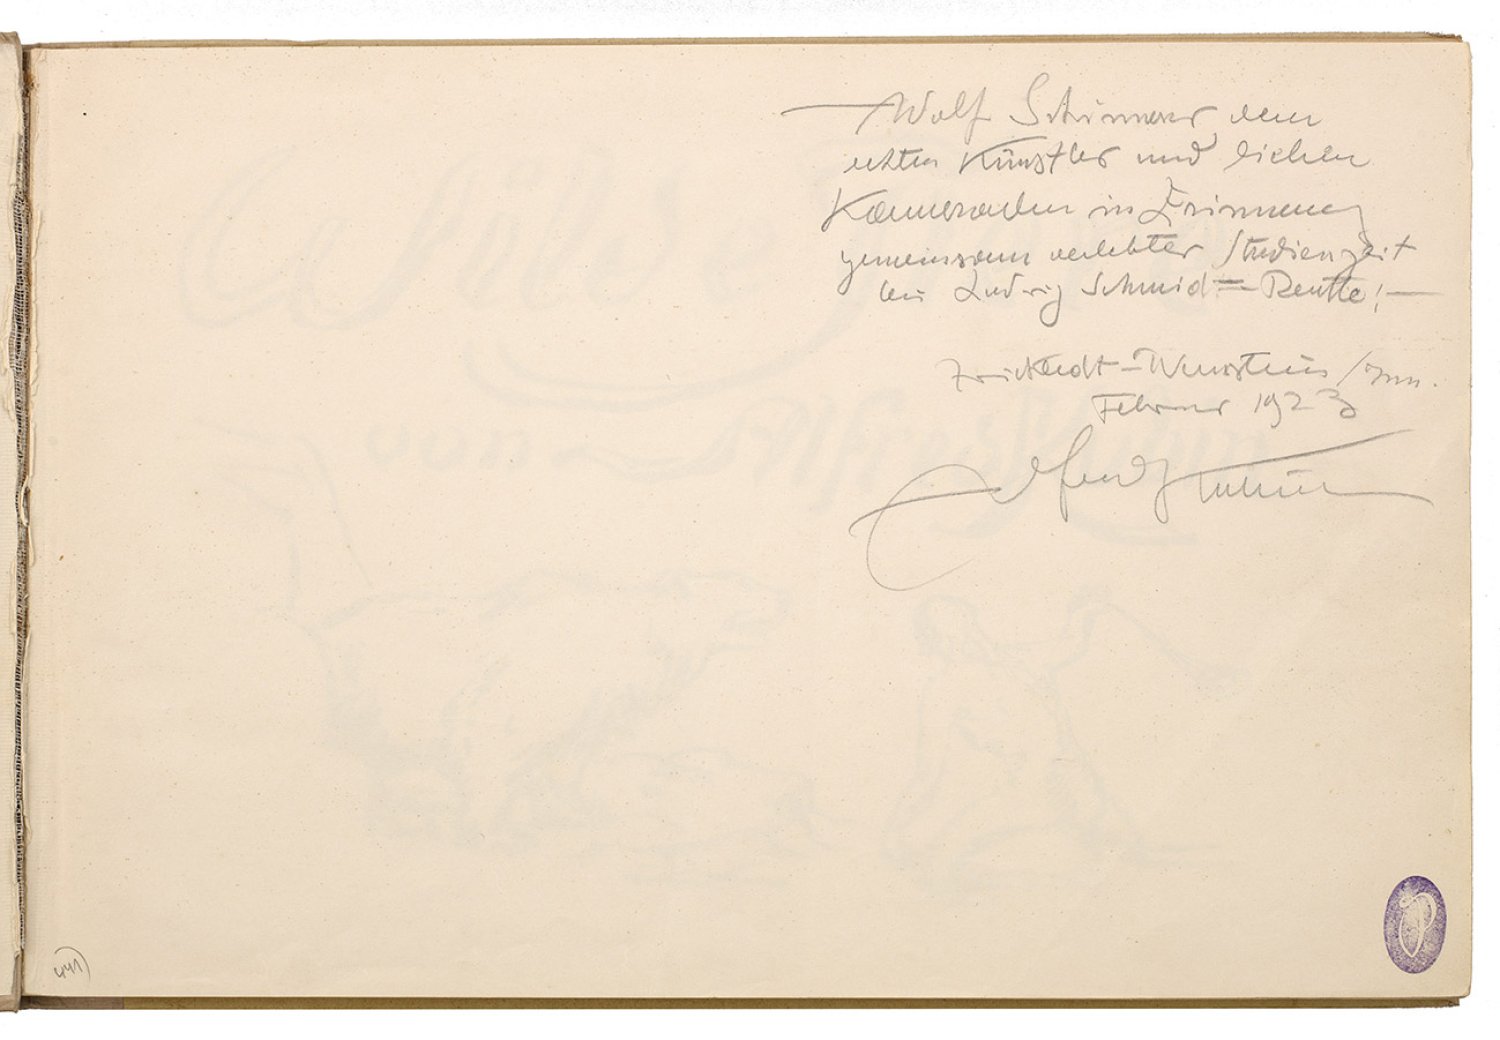 Wolf Schirmer, dem
echten Künstler und lieben
Kameraden in Erinnerung
gemeinsam verlebter Studienzeit
bei Ludwig Schmid=Reutte!—
Zwickledt–Wernstein /Inn.
Februar 1923
Alfred Kubin
441)